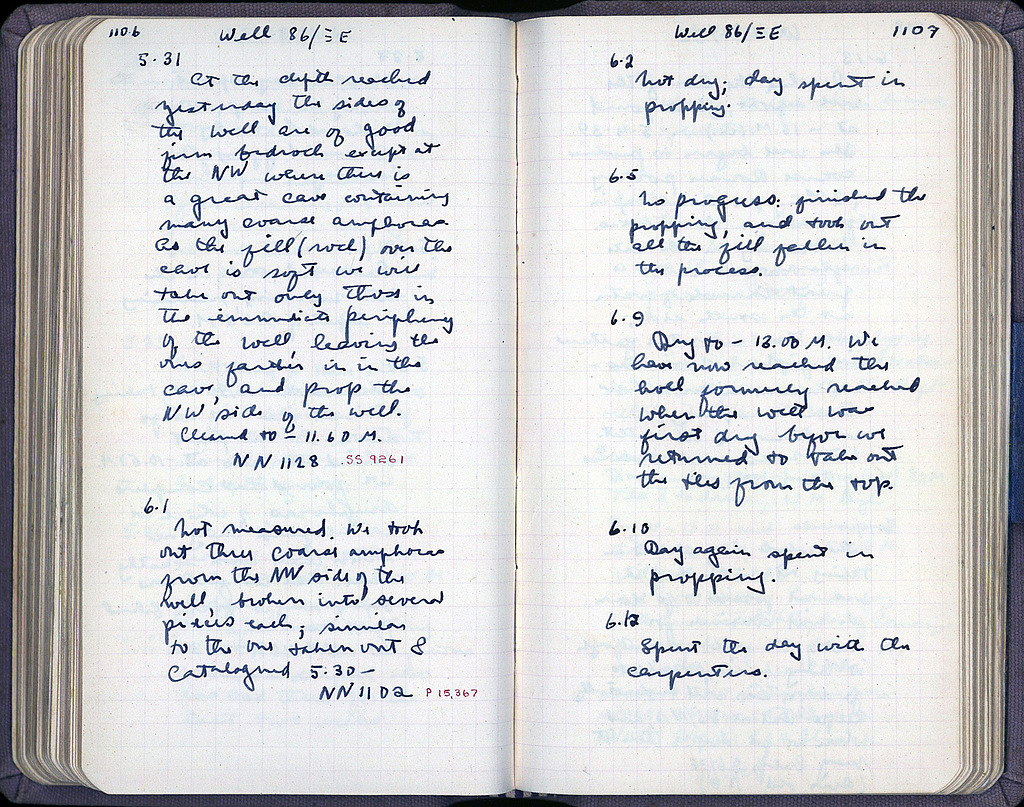 1106 Well 86/ΞE
5.31
At the depth reached
yesterday the sides of
the well are of good
firm bedrock except at
the NW where there is
a great cave containing
many coarse amphoras.
As the fill (red) over the
cave is soft we will
take out only those in
the immediate periphery
of the well, leaving the
ones farther in in the
cave, and prop the
NW side of the well.
Cleared to – 11.60 M.
NN 1128 SS 9261
6.1
Not measured. We took
out three coarse amphoras
from the NW side of the
well, broken into several
pieces each; similar
to the one taken out &
catalogued 5.30 –
NN 1102 P 15,367
Well 86/ΞE 1107
6.2
Not dug; day spent in
propping.
6.5
No progress: finished the
propping, and took out
all the fill fallen in
the process.
6.9
Dug to – 12.00 M. We
have now reached the
level formerly reached
when the well was
first dug before we
returned to take out
the tiles from the top.
6.10
Day again spent in
propping.
6.12
Spent the day with the
carpenters.